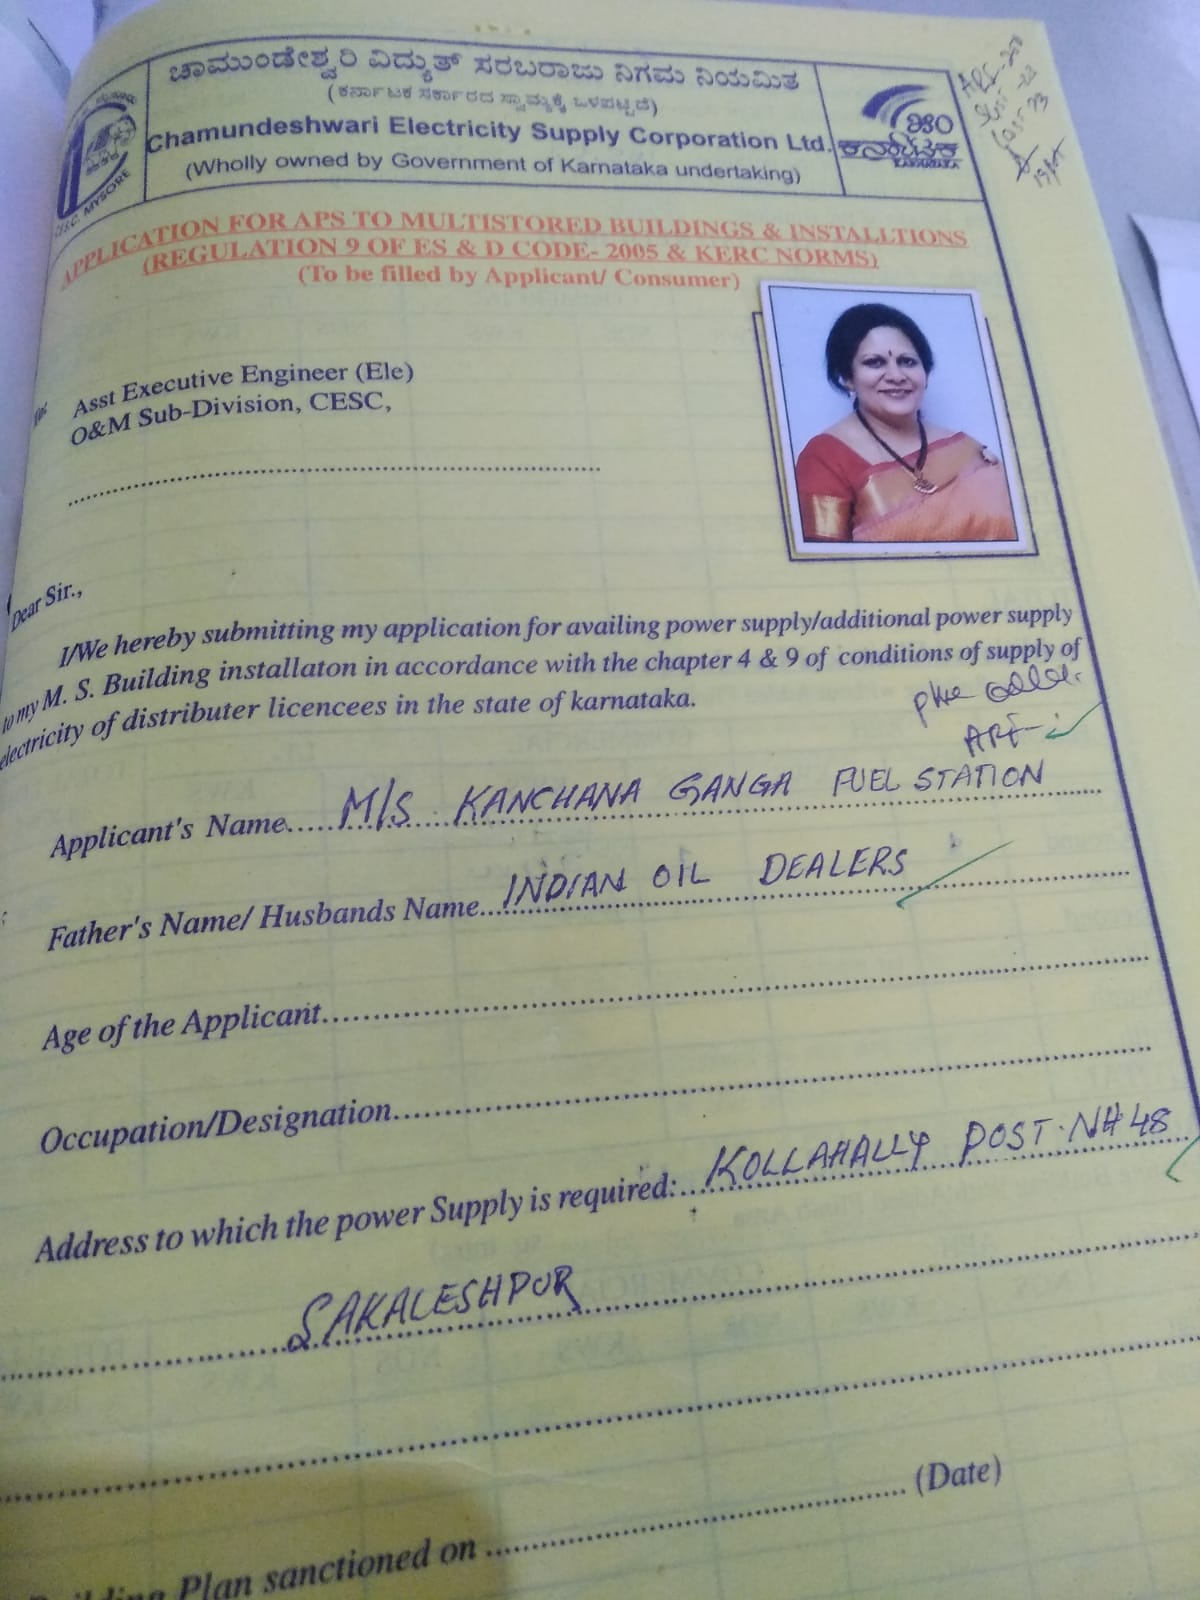 ಚಾಮುಂಡೇಶ್ವರಿ ವಿದ್ಯುತ್ ಸರಬರಾಜು ನಿಗಮ ನಿಯಮಿತ
(ಕರ್ನಾಟಕ ಸರ್ಕಾರದ ಸ್ವಾಮ್ಯಕ್ಕೆ ಒಳಪಟ್ಟಿದೆ)
Chamundeshwari Electricity Supply Corporation Ltd.
(Wholly owned by Government of Karnataka undertaking)
C.E.S.C. MYSORE
ಕರ್ನಾಟಕ
KARNATAKA
APPLICATION FOR APS TO MULTISTORED BUILDINGS & INSTALLTIONS
(REGULATION 9 OF ES & D CODE- 2005 & KERC NORMS)
(To be filled by Applicant/ Consumer)
Asst Executive Engineer (Ele)
O&M Sub-Division, CESC,
Dear Sir.,
I/We hereby submitting my application for availing power supply/additional power supply
to my M. S. Building installaton in accordance with the chapter 4 & 9 of conditions of supply of
electricity of distributer licencees in the state of karnataka.
Applicant's Name M/S KANCHANA GANGA FUEL STATION
Father's Name/ Husbands Name INDIAN OIL DEALERS
Age of the Applicant
Occupation/Designation
Address to which the power Supply is required: KOLLAHALLY POST. NH 48
SAKALESHPUR
Building Plan sanctioned on (Date)